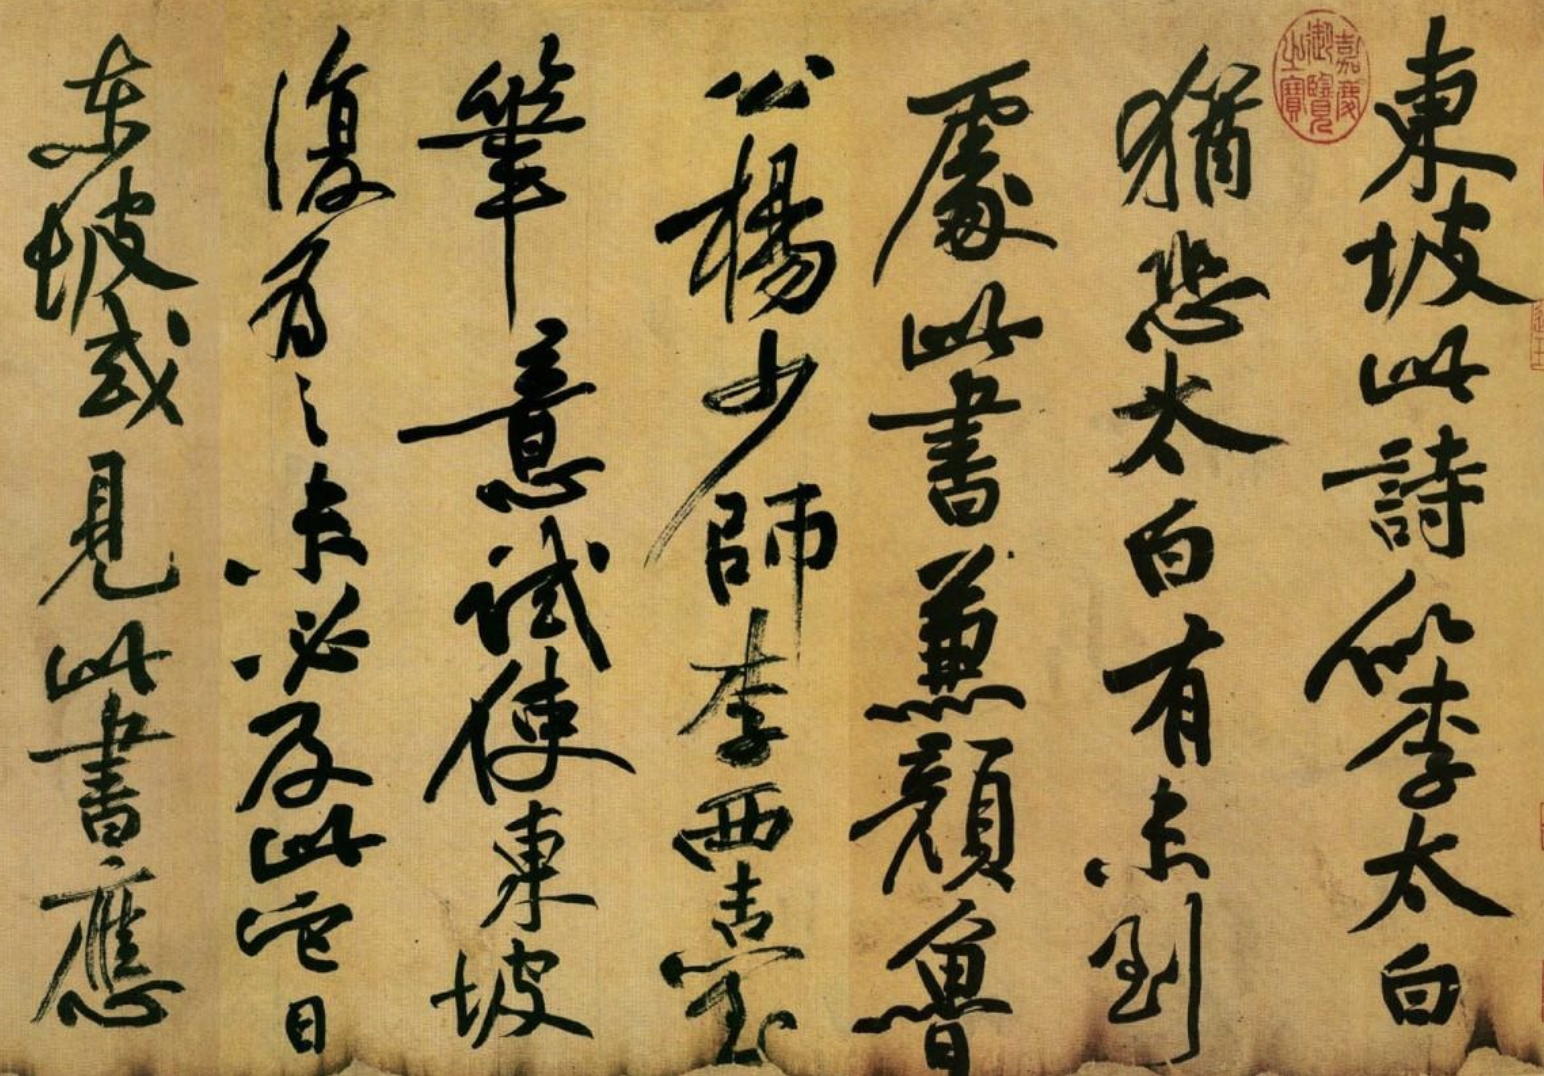 東坡此詩似李太白
猶恐太白有未到
處此書兼顏魯
公楊少師李西臺
筆意試使東坡
復為之未必及此它日
東坡或見此書應
嘉慶御覽之寶